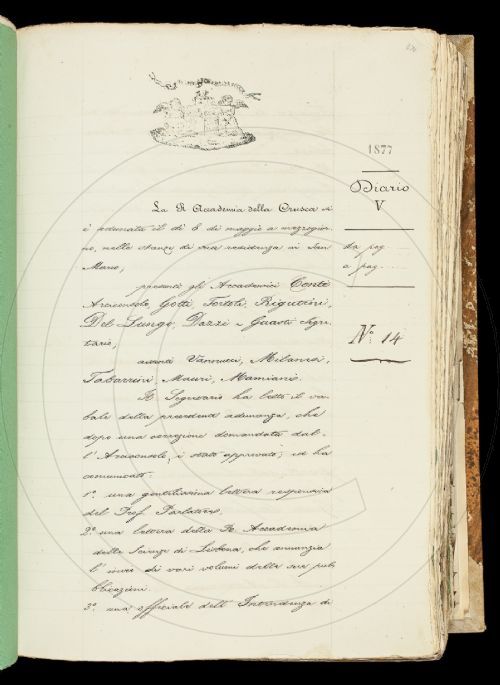 1877
Diario
V
da pag.
a pag.
Nº. 14
La R Accademia della Crusca si
è adunata il dì 8 di maggio a mezzogior-
no, nelle stanze di sua residenza in San
Marco,
presenti gli Accademici Conti
Arciconsolo, Gotti, Tortoli, Rigutini,
Del Lungo, Dazzi e Guasti Segre-
tario,
assenti Vannucci, Milanesi,
Tabarrini, Mauri, Mamiani.
Il Segretario ha letto il ver-
bale della precedente adunanza, che
dopo una correzione domandata dal-
l'Arciconsolo, è stato approvato; ed ha
comunicato:
1º. una gentilissima lettera responsiva
del Prof. Parlatore.
2º. una lettera della R. Accademia
delle Scienze di Lisbona, che annunzia
l'invio di vari volumi delle sue pub-
blicazioni.
3º. una officiale dell'Intendenza di